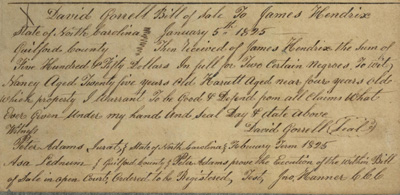 David Gorrell Bill of Sale To James Hendrix
State of North Carolina January 5th 1825
Guilford County Then received of James Hendrix the Sum of
Five Hundred & Fifty Dollars In full for Two Certain Negroes, To Wit,
Nancy Aged Twenty five years Old Hariett Aged near four years olde
which property I Warrant To Be Good & Defend from all Claims What
Ever Given Under my hand And Seal Day & date above
Witness David Gorrell (Seal)
Peter Adams, Jurat, } State of North Carolina } February Term 1825
Asa } Guilford County } Peter Adams prove the Execution of the within Bill
of Sale in open Court, Ordered to be Registered, Test, Jno. Hanner C C C